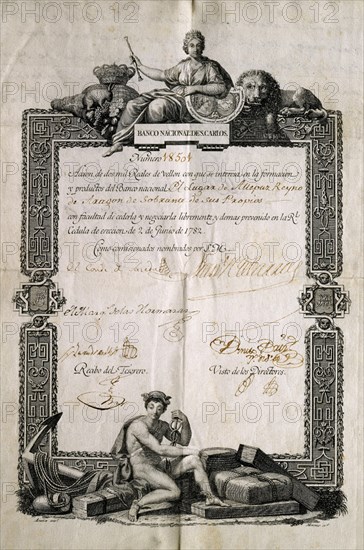 BANCO NACIONAL DE S. CARLOS.
Numero 1850
Accion de dos mil Reales de vellon con que se interesa en la formacion
y productos del Banco nacional El Lugar de Allepuz Reyno
de Aragon de Sobrante de sus Propios
con facultad de cederla y negociarla libremente, y demas prevenido en la Rl.
Cedula de ereccion de 2 de Junio de 1782.
Como comisionados nombrados por S.M.
El Conde de
El Marqs. de las Hormazas
Recibo del Tesorero. Visto de los Directores.